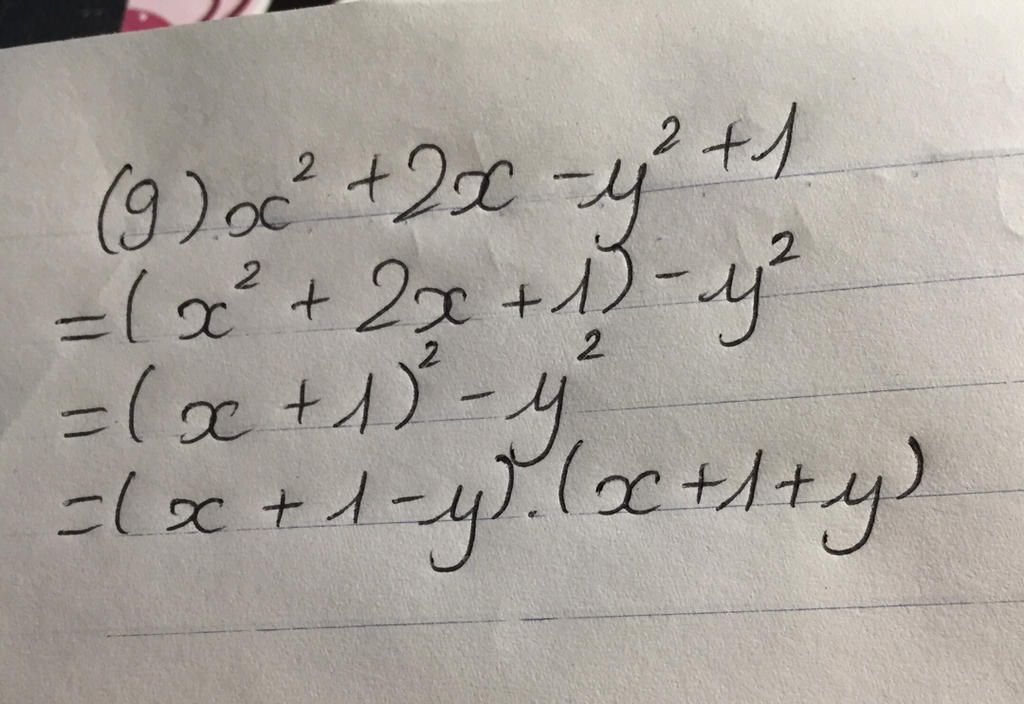 (g) x² + 2x - y² + 1
= (x² + 2x + 1) - y²
= (x + 1)² - y²
= (x + 1 - y) . (x + 1 + y)